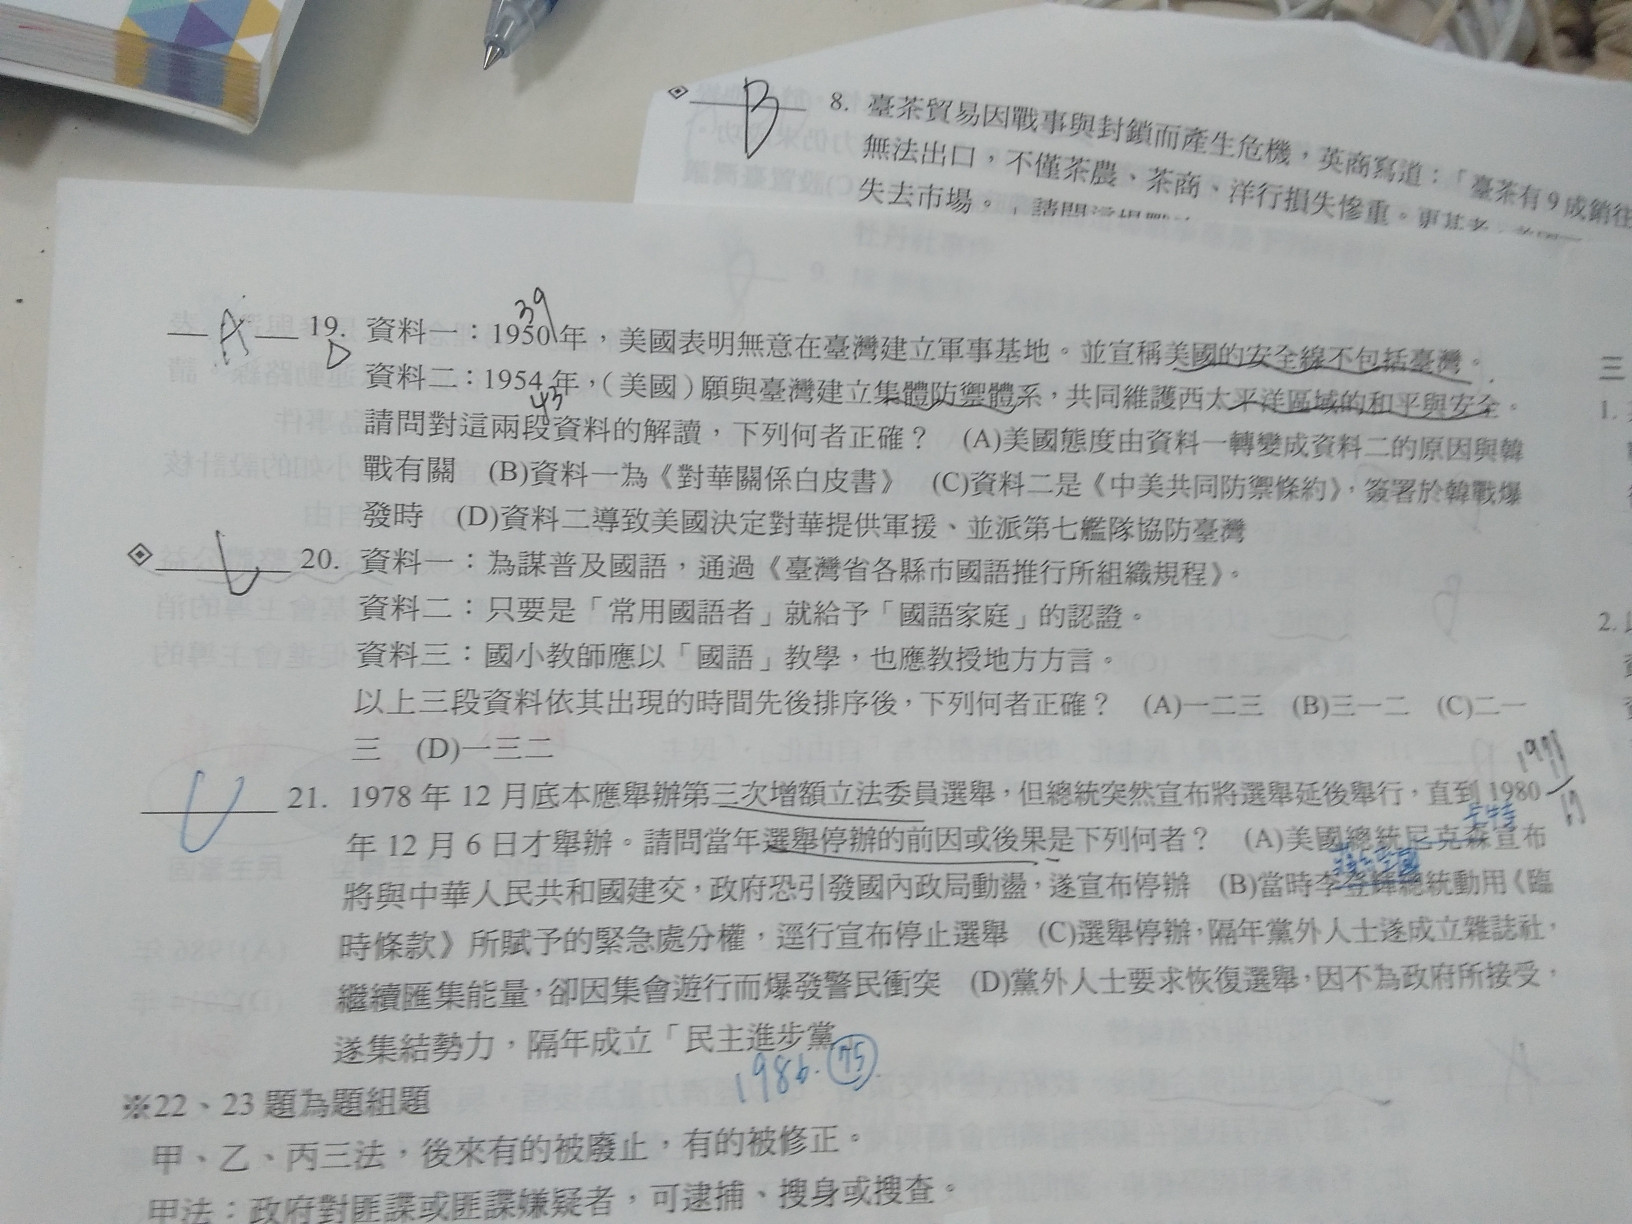 B
8. 臺茶貿易因戰事與封鎖而產生危機，英商寫道：「臺茶有9成銷往
無法出口，不僅茶農、茶商、洋行損失慘重。更甚者，
失去市場。」請問這場戰
39
A 19. 資料一：1950年，美國表明無意在臺灣建立軍事基地。並宣稱美國的安全線不包括臺灣。
D
資料二：1954年，（美國）願與臺灣建立集體防禦體系，共同維護西太平洋區域的和平與安全。
43
請問對這兩段資料的解讀，下列何者正確？ (A)美國態度由資料一轉變成資料二的原因與韓
戰有關 (B)資料一為《對華關係白皮書》 (C)資料二是《中美共同防禦條約》，簽署於韓戰爆
發時 (D)資料二導致美國決定對華提供軍援、並派第七艦隊協防臺灣
20. 資料一：為謀普及國語，通過《臺灣省各縣市國語推行所組織規程》。
資料二：只要是「常用國語者」就給予「國語家庭」的認證。
資料三：國小教師應以「國語」教學，也應教授地方方言。
以上三段資料依其出現的時間先後排序後，下列何者正確？ (A)一二三 (B)三一二 (C)二一
三 (D)一三二
21. 1978年12月底本應舉辦第三次增額立法委員選舉，但總統突然宣布將選舉延後舉行，直到1980
卡特
年12月6日才舉辦。請問當年選舉停辦的前因或後果是下列何者？ (A)美國總統尼克森宣布
蔣經國
將與中華人民共和國建交，政府恐引發國內政局動盪，遂宣布停辦 (B)當時李登輝總統動用《臨
時條款》所賦予的緊急處分權，逕行宣布停止選舉 (C)選舉停辦，隔年黨外人士遂成立雜誌社，
繼續匯集能量，卻因集會遊行而爆發警民衝突 (D)黨外人士要求恢復選舉，因不為政府所接受，
遂集結勢力，隔年成立「民主進步黨
1986. 75
※22、23題為題組題
甲、乙、丙三法，後來有的被廢止，有的被修正。
甲法：政府對匪諜或匪諜嫌疑者，可逮捕、搜身或搜查。
三
1.
2.